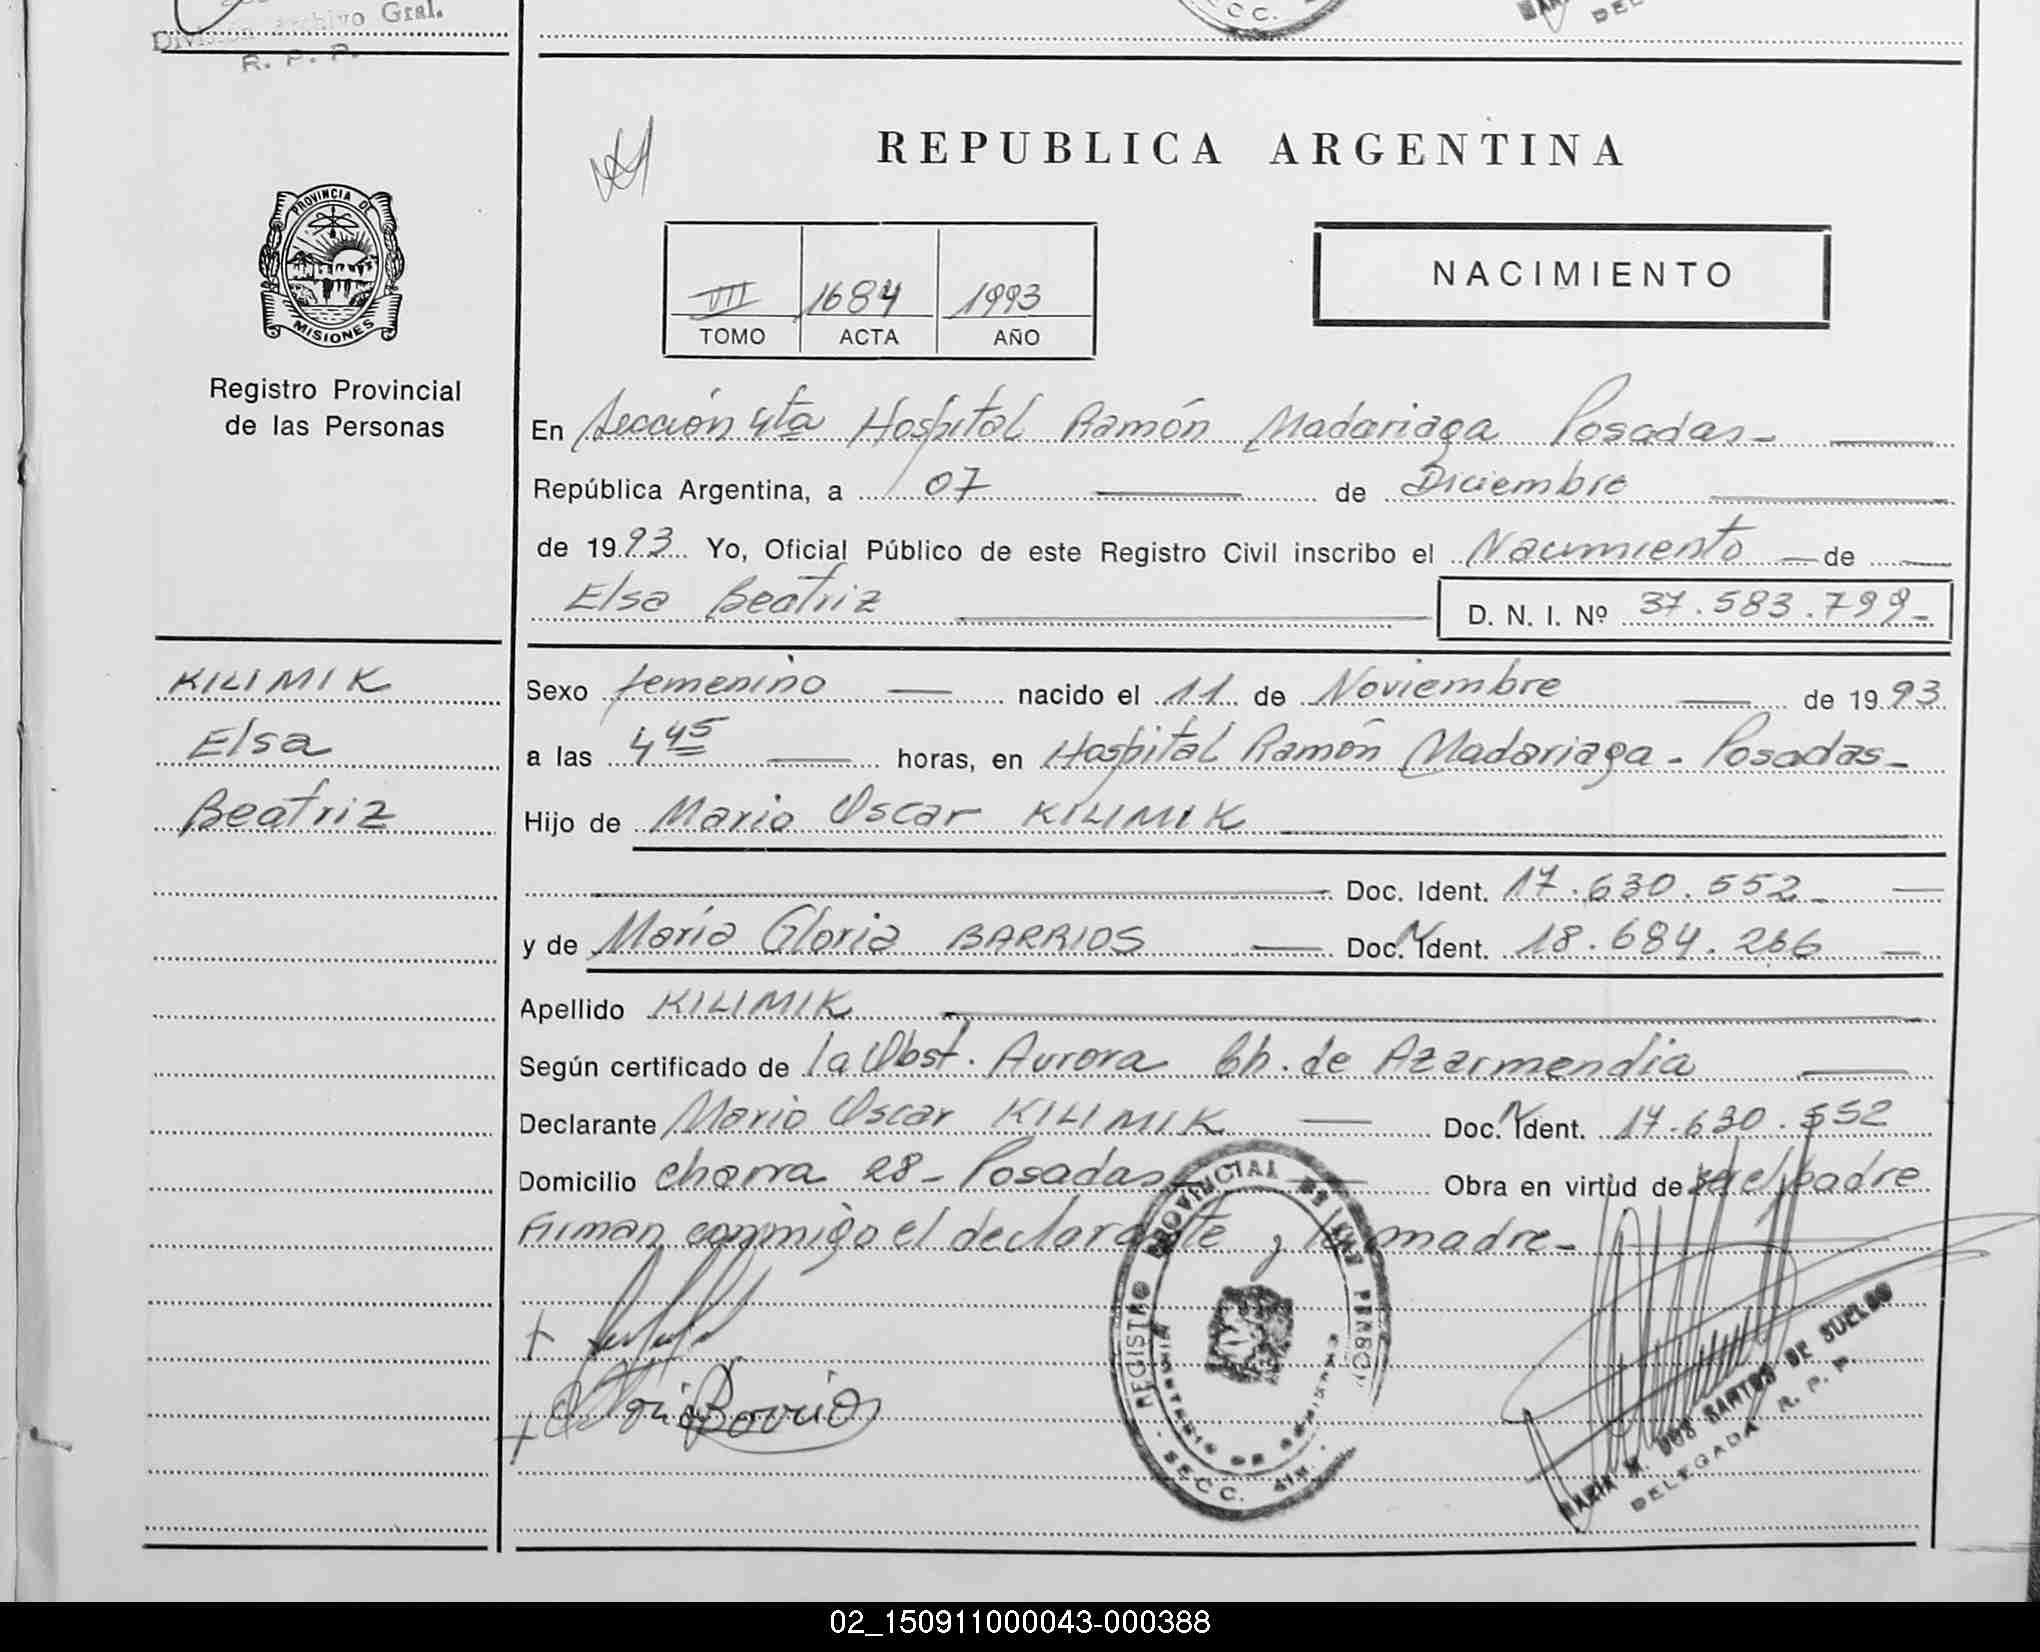 División Archivo Gral.
R. P. P.
REPUBLICA ARGENTINA
PROVINCIA DE
MISIONES
Registro Provincial
de las Personas
VII 1684 1993
TOMO ACTA AÑO
NACIMIENTO
En Sección 4ta Hospital Ramón Madariaga Posadas-
República Argentina, a 07 de Diciembre
de 1993 Yo, Oficial Público de este Registro Civil inscribo el Nacimiento de
Elsa Beatriz D. N. I. Nº 37.583.799-
KILIMIK
Elsa
Beatriz
Sexo femenino nacido el 11 de Noviembre de 1993
a las 4 45 horas, en Hospital Ramón Madariaga - Posadas-
Hijo de Mario Oscar KILIMIK
Doc. Ident. 17.630.552-
y de María Gloria BARRIOS Doc. Ident. 18.684.266
Apellido KILIMIK
Según certificado de la Obst. Aurora Ch. de Azarmendia
Declarante Mario Oscar KILIMIK Doc. Ident. 17.630.552
Domicilio Chacra 28- Posadas Obra en virtud de ser el padre
Firman conmigo el declarante y la madre-
REGISTRO PROVINCIAL DE LAS PERSONAS
SECC. 4ta.
MARIA M. DOS SANTOS DE SUELDO
DELEGADA R. P. P.
02_150911000043-000388